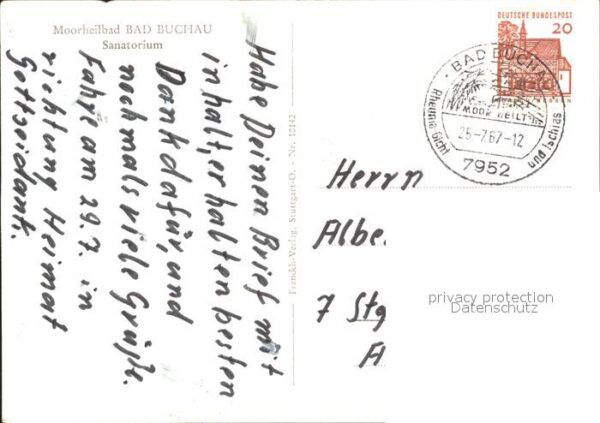 Moorheilbad BAD BUCHAU
Sanatorium
Habe Deinen Brief mit
inhalt, erhalten besten
Dank dafür, und
nochmals viele Grüße.
Fahre am 29.7. in
richtung Heimat
Gottseidank.
Franckh-Verlag, Stuttgart-O. - Nr. 10142
DEUTSCHE BUNDESPOST
20
BAD BUCHAU
MOOR HEILT
Rheuma Gicht
und Ischias
25-7.67-12
7952
Herrn
Albe.
7 Stg
A
privacy protection
Datenschutz